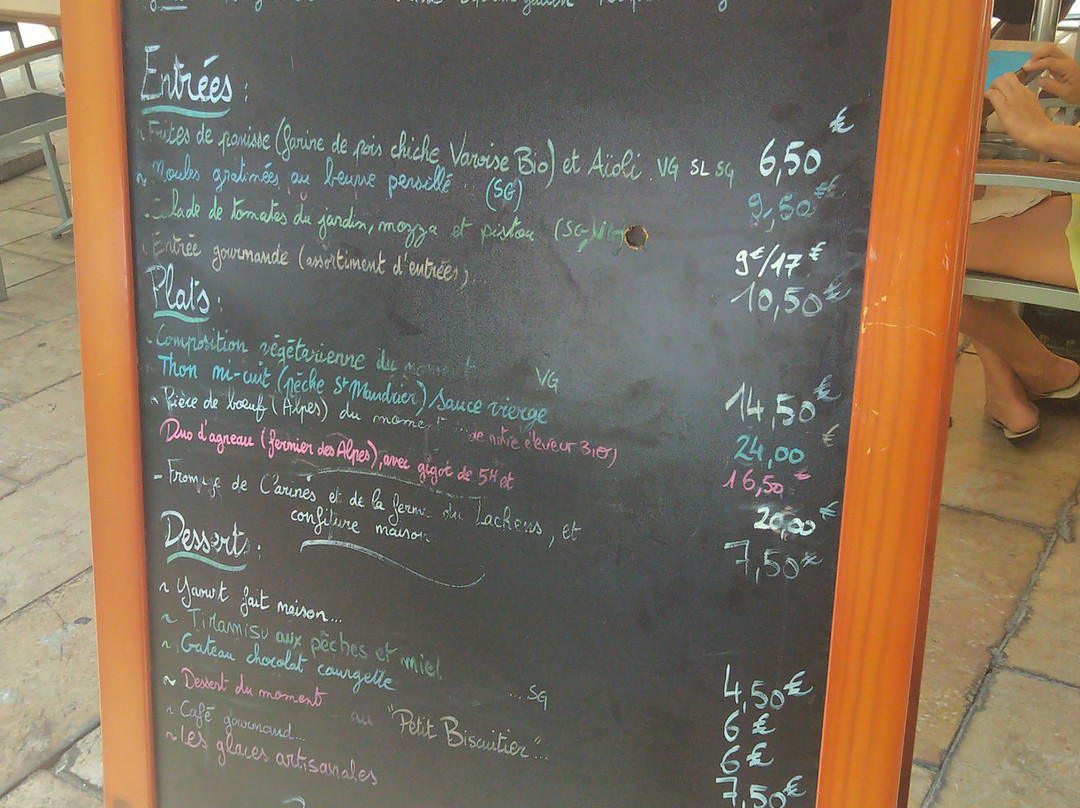 Entrées :
~ Frites de panisse (farine de pois chiche Varoise Bio) et Aïoli. VG SL SG 6,50 €
~ Moules gratinées au beurre persillé (SG) 9,50 €
Salade de tomates du jardin, mozza et pistou (SG, VG) 9€/17 €
Entrée gourmande (assortiment d'entrées)... 10,50 €
Plats :
- Composition végétarienne du moment VG 14,50 €
Thon mi-cuit (pêche St Mandrier) sauce vierge 24,00 €
~ Pièce de boeuf (Alpes) du moment ... de notre éleveur Bio) 16,50 €
Duo d'agneau (fermier des Alpes), avec gigot de 5H et 20,00 €
- Fromage de et de la ferme du Lachens, et 7,50 €
confiture maison
Desserts :
~ Yaourt fait maison... 4,50 €
~ Tiramisu aux pêches et miel 6 €
~ Gateau chocolat courgette ... SG 6 €
~ Dessert du moment 7,50 €
~ Café gourmand... au "Petit Biscuitier"...
~ Les glaces artisanales